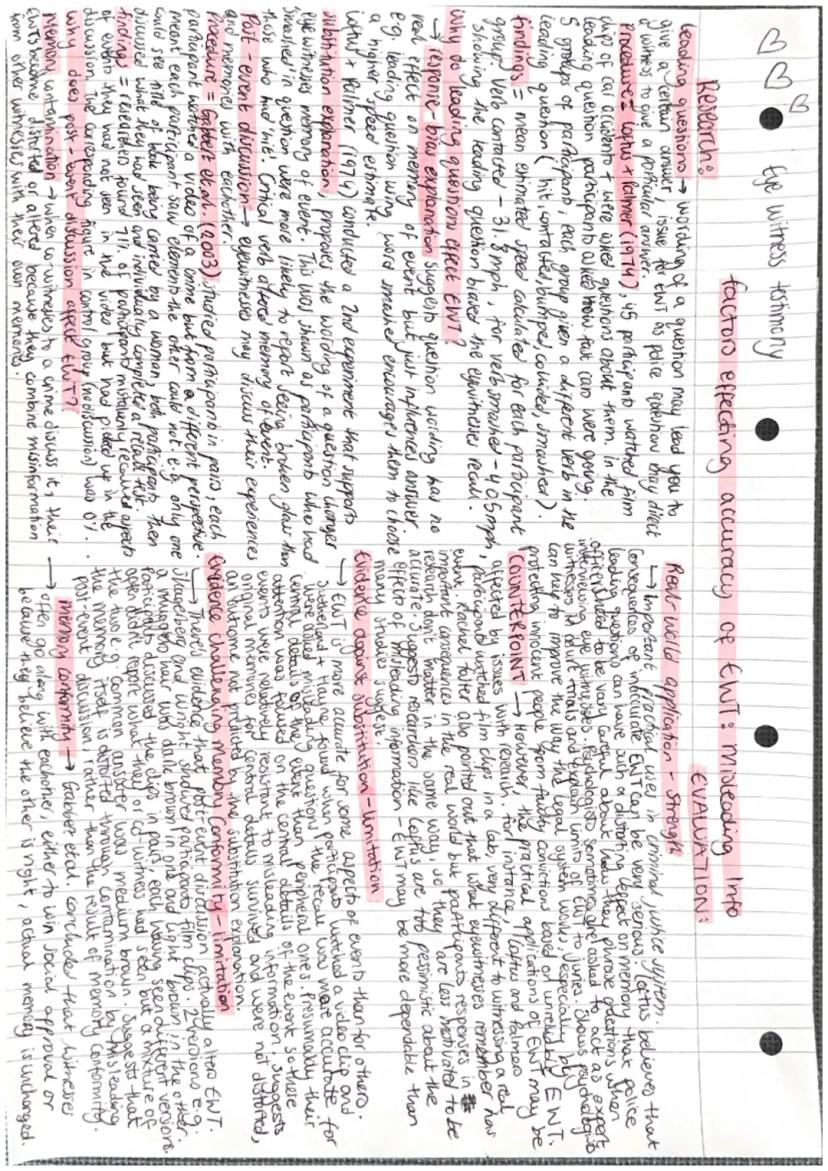 Eye witness testimony
factors effecting accuracy of EWT: misleading info
Research:
Leading questions → wording of a question may lead you to
give a certain answer, issue for EWT as police questions may direct
a witness to give a particular answer.
Procedure = Loftus + Palmer (1974), 45 participants watched film
clips of car accidents + were asked questions about them, in the
leading question participants asked how fast cars were going.
5 groups of participants, each group given a different verb in the
leading question (hit, contacted, bumped, collided, smashed).
findings = mean estimated speed calculated for each participant
group. Verb contacted - 31.8mph, for verb smashed - 40.5mph,
showing the leading question biased the eyewitnesses recall.
Why do leading questions effect EWT?
→ response-bias explanation suggests question wording has no
real effect on memory of event but just influences answer
e.g. leading question using word smashed encourages them to choose
a higher speed estimate.
Loftus + Palmer (1974) conducted a 2nd experiment that supports
substitution explanation, proposes the wording of a question changes
eye witnesses memory of event. This was shown as participants who had
smashed in question were more likely to report seeing broken glass than
those who had hit. Critical verb altered memory of event.
Post-event discussion → eyewitnesses may discuss their experiences
and memories with eachother.
Procedure = Gabbert et al. (2003), studied participants in pairs, each
participant watched a video of a crime but from a different perspective.
meant each participant saw elements the other could not e.g. only one
could see title of book being carried by a woman, both participants then
discussed what they had seen and individually complete a recall test.
findings = researchers found 71% of participants mistakenly recalled aspects
of events they had not seen in the video but had picked up in the
discussion. The corresponding figure in control group (no discussion) was 0%.
Why does post-event discussion affect EWT?
Memory contamination → when co-witnesses to a crime discuss it, their
EWTs become distorted or altered because they combine misinformation
from other witnesses with their own memories.
EVALUATION:
Real-world application - strength
→ Important practical uses in criminal justice system.
consequences of inaccurate EWT can be very serious. Loftus believes that
leading questions can have such a distorting effect on memory that police
officers need to be very careful about how they phrase questions when
interviewing eye witnesses. Psychologists sometimes are asked to act as expert
witnesses in court trials and explain limits of EWT to juries. Shows psychologists
can help to improve the way the legal system works, especially by
protecting innocent people from faulty convictions based of unreliable EWT.
COUNTERPOINT → However, the practical applications of EWT may be
affected by issues with research. For instance, Loftus and Palmers
participants watched film clips in a lab, very different to witnessing a real
event. Rachel Foster also pointed out that what eyewitnesses remember has
important consequences in the real world but participants responses in
research don't matter in the same way, so they are less motivated to be
accurate. Suggests researchers like Loftus are too pessimistic about the
effects of misleading information - EWT may be more dependable than
many studies suggest.
Evidence against substitution - limitation
→ EWT is more accurate for some aspects of events than for others.
Sutherland + Hayne found when participants watched a video clip and
were asked misleading questions the recall was more accurate for
central details of the event than peripheral ones. Presumably their
attention was focused on the central details of the event so these
events were relatively resistant to misleading information. Suggests
original memories for central details survived and were not distorted,
an outcome not predicted by the substitution explanation.
Evidence challenging memory conformity - limitation
→ There's evidence that post-event discussion actually alters EWT.
Skagerberg and Wright showed participants film clips. 2 versions e.g.
a muggers hair was dark brown in one and light brown in the other.
Participants discussed the clips in pairs, each having seen different versions.
often didn't report what they or co-witness had seen but a mixture of
the two e.g. common answer was medium brown. Suggests that
the memory itself is distorted through contamination by misleading
post-event discussion, rather than the result of memory conformity.
→ Memory conformity → Gabbet et al. concluded that witnesses
often go along with eachother, either to win social approval or
because they believe the other is right, actual memory is unchanged.